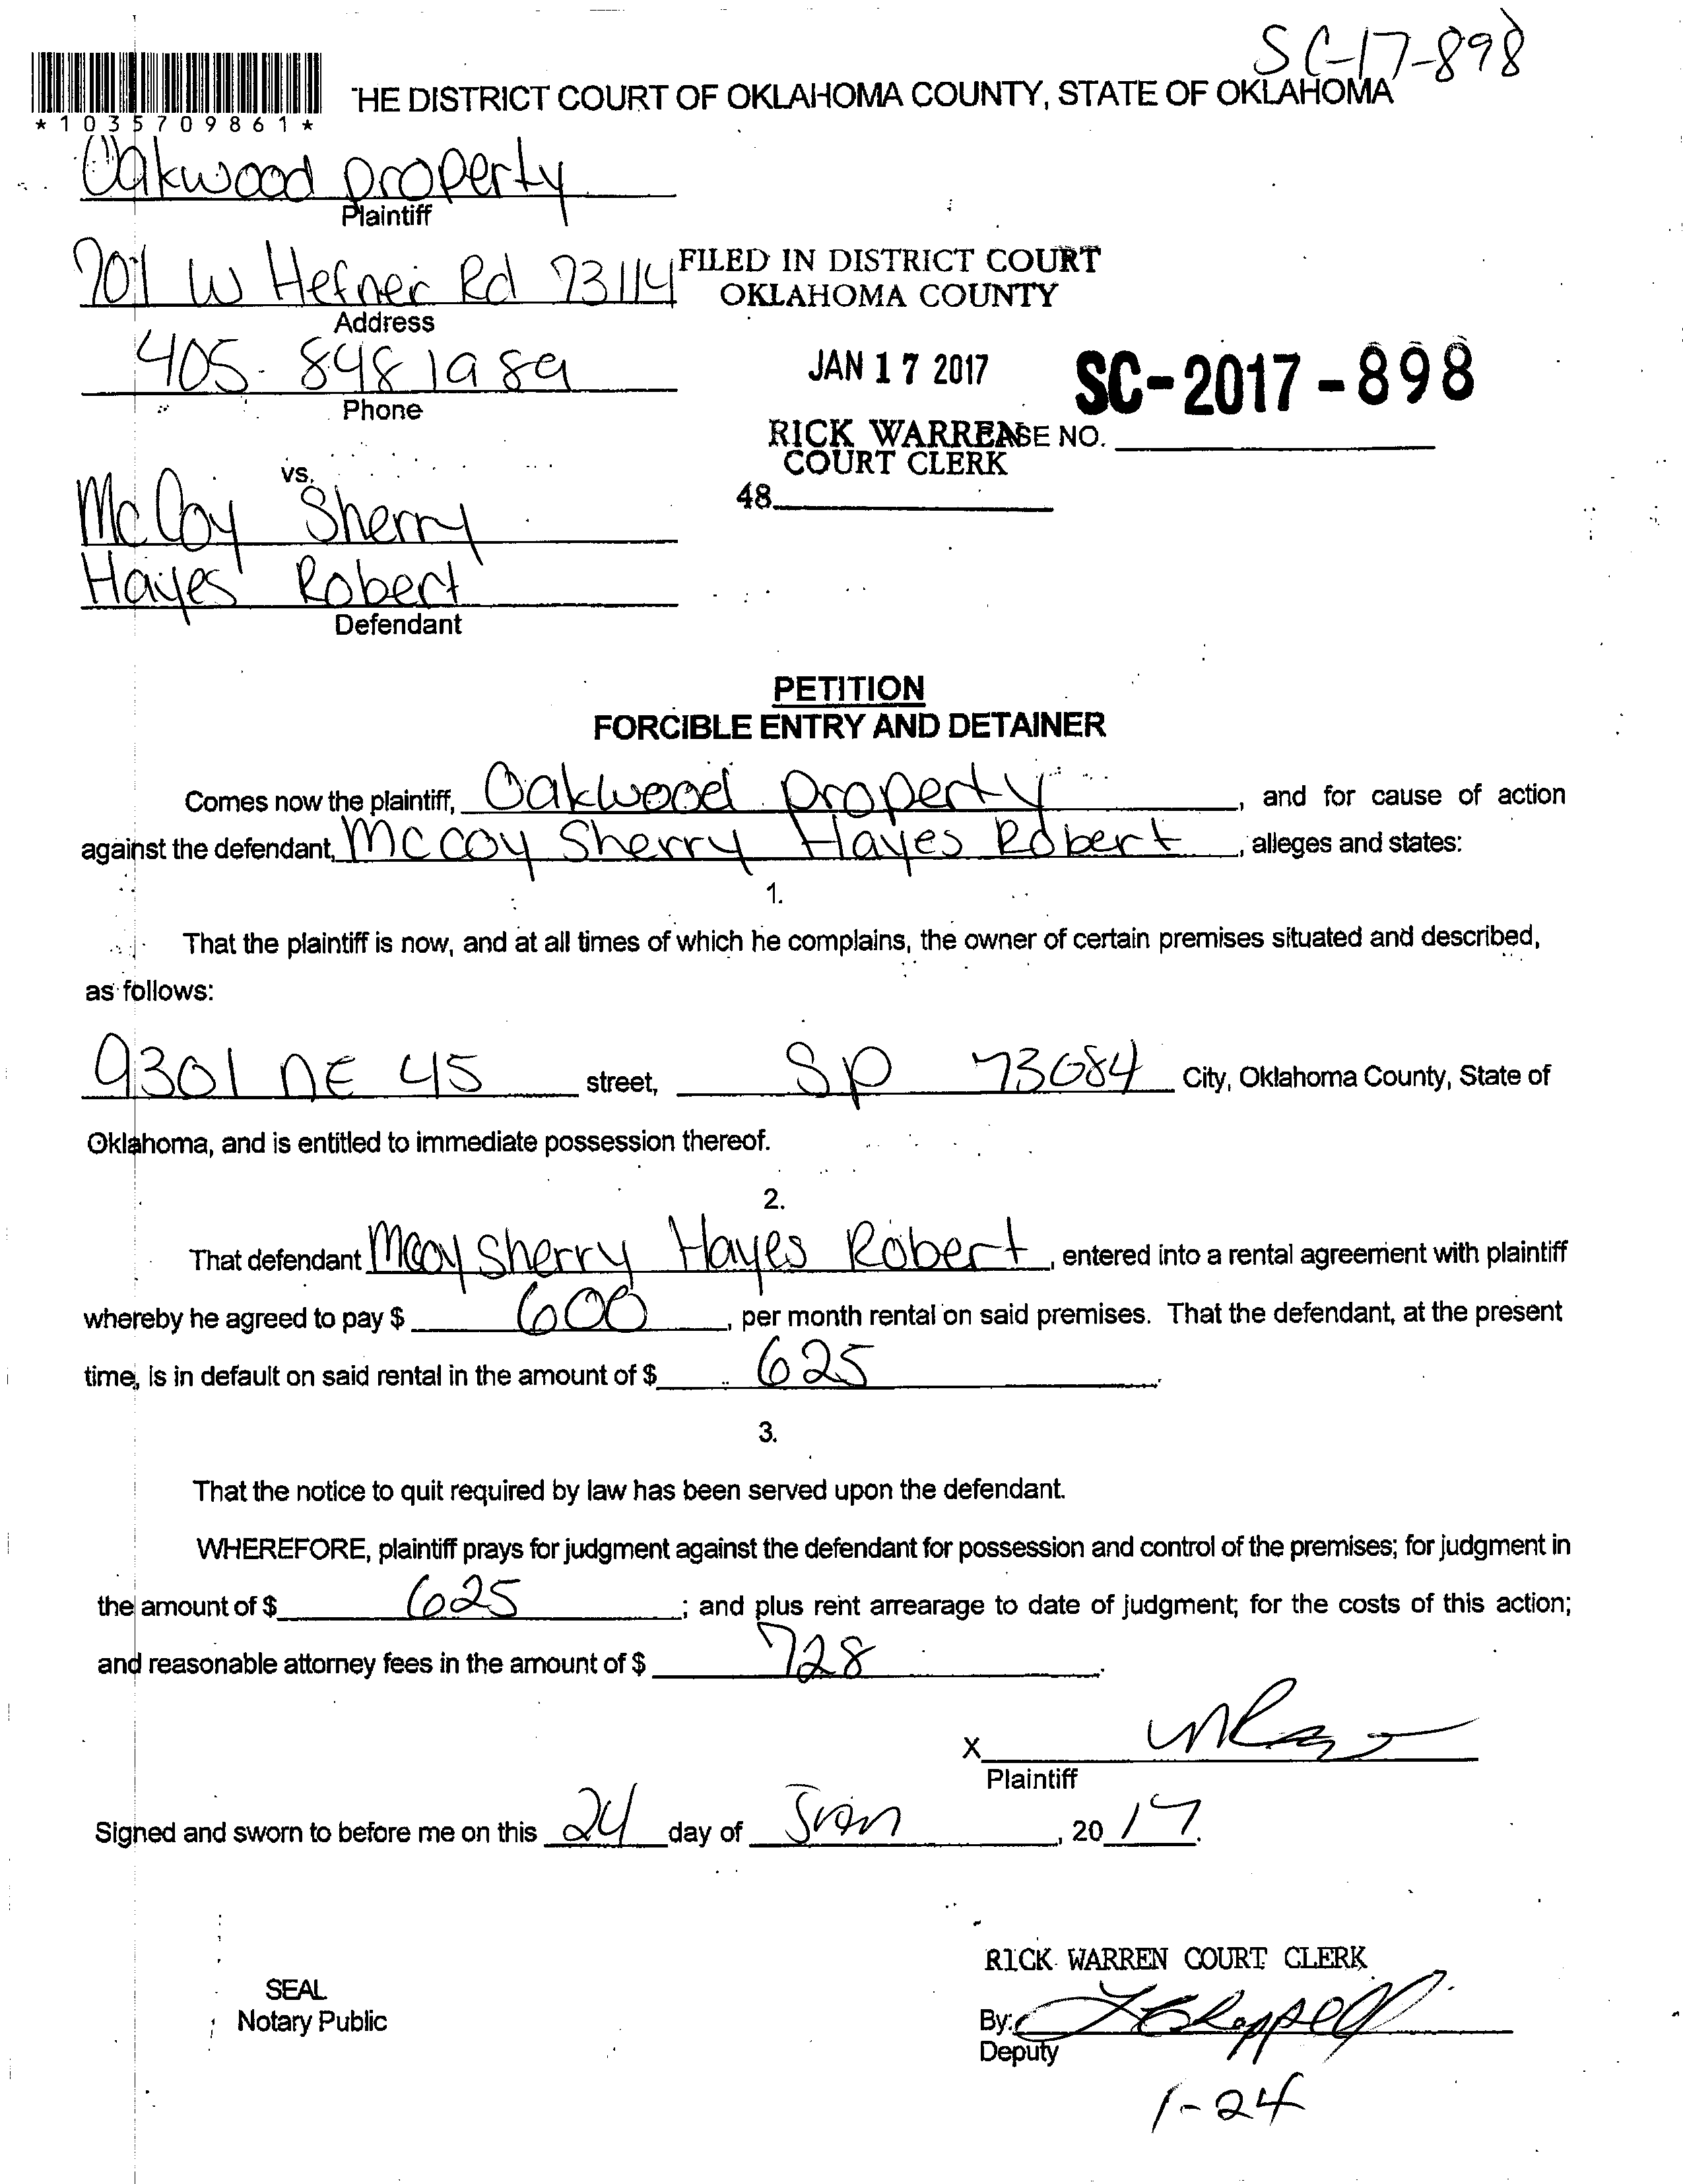 SC-17-898
THE DISTRICT COURT OF OKLAHOMA COUNTY, STATE OF OKLAHOMA
*1035709861*
Oakwood property
Plaintiff
701 W Hefner Rd 73114
Address
FILED IN DISTRICT COURT
OKLAHOMA COUNTY
405-848 1989
Phone
JAN 17 2017
SC-2017-898
RICK WARREN
CASE NO.
COURT CLERK
48
vs.
McCoy Sherry
Hayes Robert
Defendant
PETITION
FORCIBLE ENTRY AND DETAINER
Comes now the plaintiff, Oakwood property, and for cause of action
against the defendant, McCoy Sherry Hayes Robert, alleges and states:
1.
That the plaintiff is now, and at all times of which he complains, the owner of certain premises situated and described,
as follows:
9301 NE 45 street, Sp 73084 City, Oklahoma County, State of
Oklahoma, and is entitled to immediate possession thereof.
2.
That defendant Mcoy Sherry Hayes Robert, entered into a rental agreement with plaintiff
whereby he agreed to pay $ 600, per month rental on said premises. That the defendant, at the present
time, is in default on said rental in the amount of $ 625.
3.
That the notice to quit required by law has been served upon the defendant.
WHEREFORE, plaintiff prays for judgment against the defendant for possession and control of the premises; for judgment in
the amount of $ 625; and plus rent arrearage to date of judgment; for the costs of this action;
and reasonable attorney fees in the amount of $ 728.
X
Plaintiff
Signed and sworn to before me on this 24 day of Jan, 2017.
RICK WARREN COURT CLERK
SEAL
Notary Public
By:
Deputy
1-24